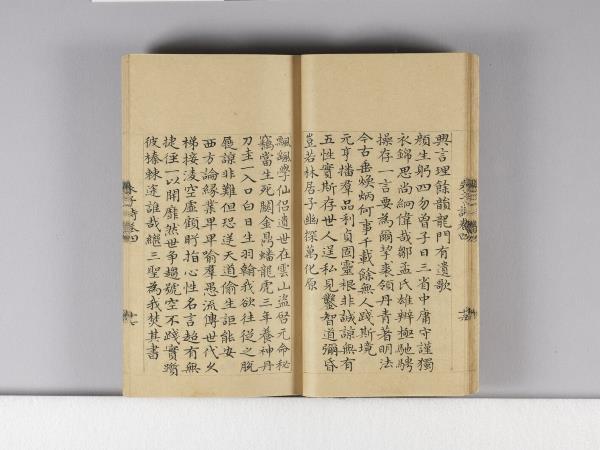 興言理餘韻龍門有遺歌
顏生躬四勿曾子日三省中庸守謹獨
衣錦思尚絅偉哉鄒孟氏雄辨極馳騁
操存一言要為爾挈裘領丹青著明法
今古垂煥炳何事千載餘無人踐斯境
元亨播羣品利貞固靈根非誠諒無有
五性實斯存世人逞私見鑿智道彌昏
豈若林居子幽探萬化原
飄飄學仙侶遺世在雲山盜啓元命秘
竊當生死關金鼎蟠龍虎三年養神丹
刀圭一入口白日生羽翰我欲往從之脫
屣諒非難但恐逆天道偷生詎能安
西方論緣業卑卑喻羣愚流傳世代久
梯接淩空虛顧盼指心性名言超有無
捷徑一以開靡然世爭趨號空不踐實躓
彼榛棘途誰哉繼三聖為我焚其書
朱子詩卷四
十六